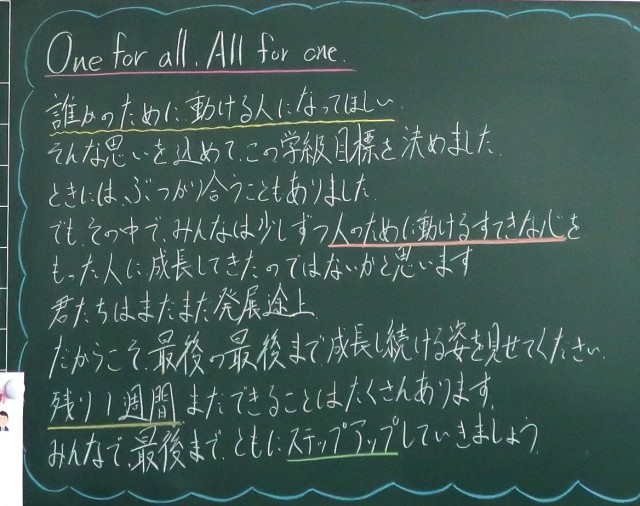 One for all. All for one.
誰かのために動ける人になってほしい
そんな思いを込めて、この学級目標を決めました。
ときには、ぶつかり合うこともありました。
でも、その中で、みんなは少しずつ人のために動けるすてきな心を
もった人に成長してきたのではないかと思います
君たちはまだまだ発展途上。
だからこそ、最後の最後まで成長し続ける姿を見せてください。
残り1週間まだできることはたくさんあります。
みんなで、最後まで、ともにステップアップしていきましょう。